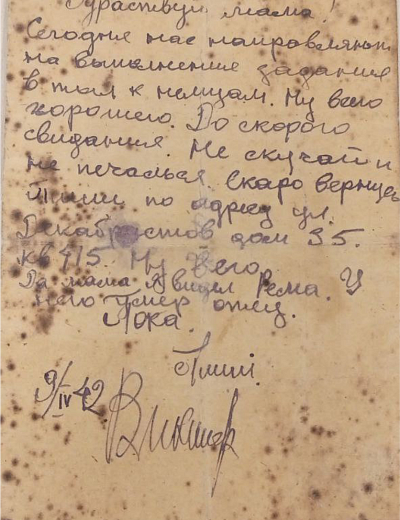 Здраствуй мама!
Сегодня нас направляют
на выполнение задания
в тыл к немцам. Ну всего
хорошего. До скорого
свидания. Не скучай и
не печалься. Скаро вернусь
Пиши по адресу ул.
Декабристов дом 35.
кв 415. Ну всего.
Да мама Я видел Рема. У
него умер отец.
Пока.
Пиши.
9/IV 42